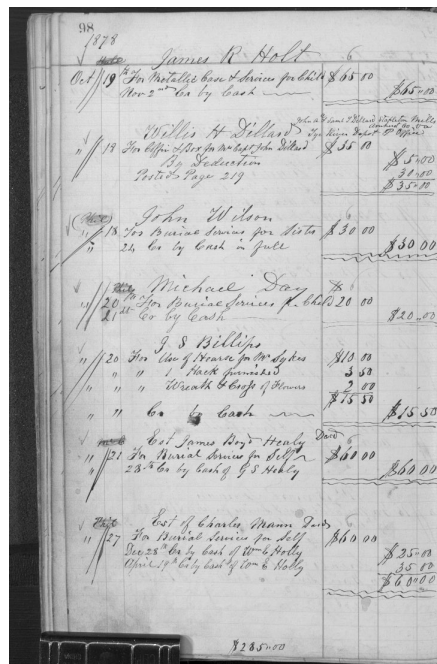 98
1878
James R Holt
Oct 19th For Metallic Case & Services for Child $65 00
Nov 2nd Cr by Cash $65.00
Willis H Dillard
" 19 For Coffin & Box for John Dillard $35 00
By Deduction $5.00
Posted Page 219 30.00
$35.00
John Wilson
" 18 For Burial Services for Sister $30 00
" 24 Cr by Cash in full $30 00
Michael Day
" 20th For Burial Services for Child 20 00
21st Cr by Cash $20.00
J S Billips
" 20 For Use of Hearse for Mr Sykes $10 00
" " " Hack furnished 3 50
" " " Wreath & Cross of Flowers 2 00
$15 50
" " Cr by Cash $15 50
Est James Boyd Healy Decd
" 21 For Burial Services for Self $60 00
" 23th Cr by Cash of G S Healy $60 00
Est of Charles Mann Decd
" 27 For Burial Services for Self $60 00
Dec 28th Cr by Cash of Wm E Holly $25.00
April 19th Cr by Cash of Wm E Holly 35 00
$60.00
$285.00